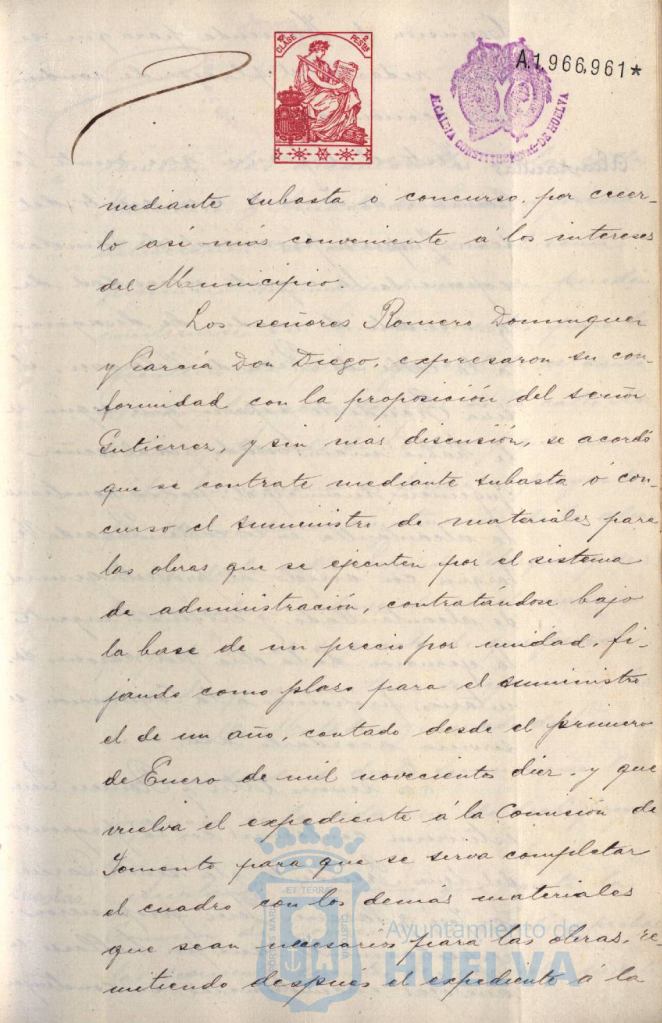 10ª CLASE 2 PESTAS
A1,966,961*
ALCALDIA CONSTITUCIONAL DE HUELVA
mediante subasta o concurso, por creer-
lo así más conveniente á los intereses
del Municipio.
Los señores Romero Dominguez
y García Don Diego, expresaron su con-
formidad con la proposición del señor
Gutierrez, y sin mas discusión, se acordó
que se contrate mediante subasta ó con-
curso el suministro de materiales para
las obras que se ejecuten por el sistema
de administración, contratandose bajo
la base de un precio por unidad, fi-
jando como plazo para el suministro
el de un año, contado desde el primero
de Enero de mil novecientos diez, y que
vuelva el expediente á la Comisión de
Fomento para que se sirva completar
el cuadro con los demás materiales
que sean necesarios para las obras, re-
mitiendo después el expediente á la
PORTUS MARIS ET TERRAE CUSTODIA
Ayuntamiento de
HUELVA